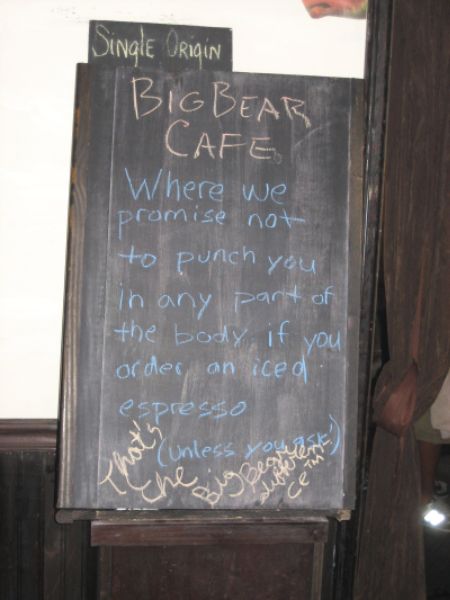 Single Origin
BIG BEAR
CAFE
Where we
promise not
to punch you
in any part of
the body if you
order an iced
espresso
(unless you ask)
That's
the Big Bear
differen-
ce™